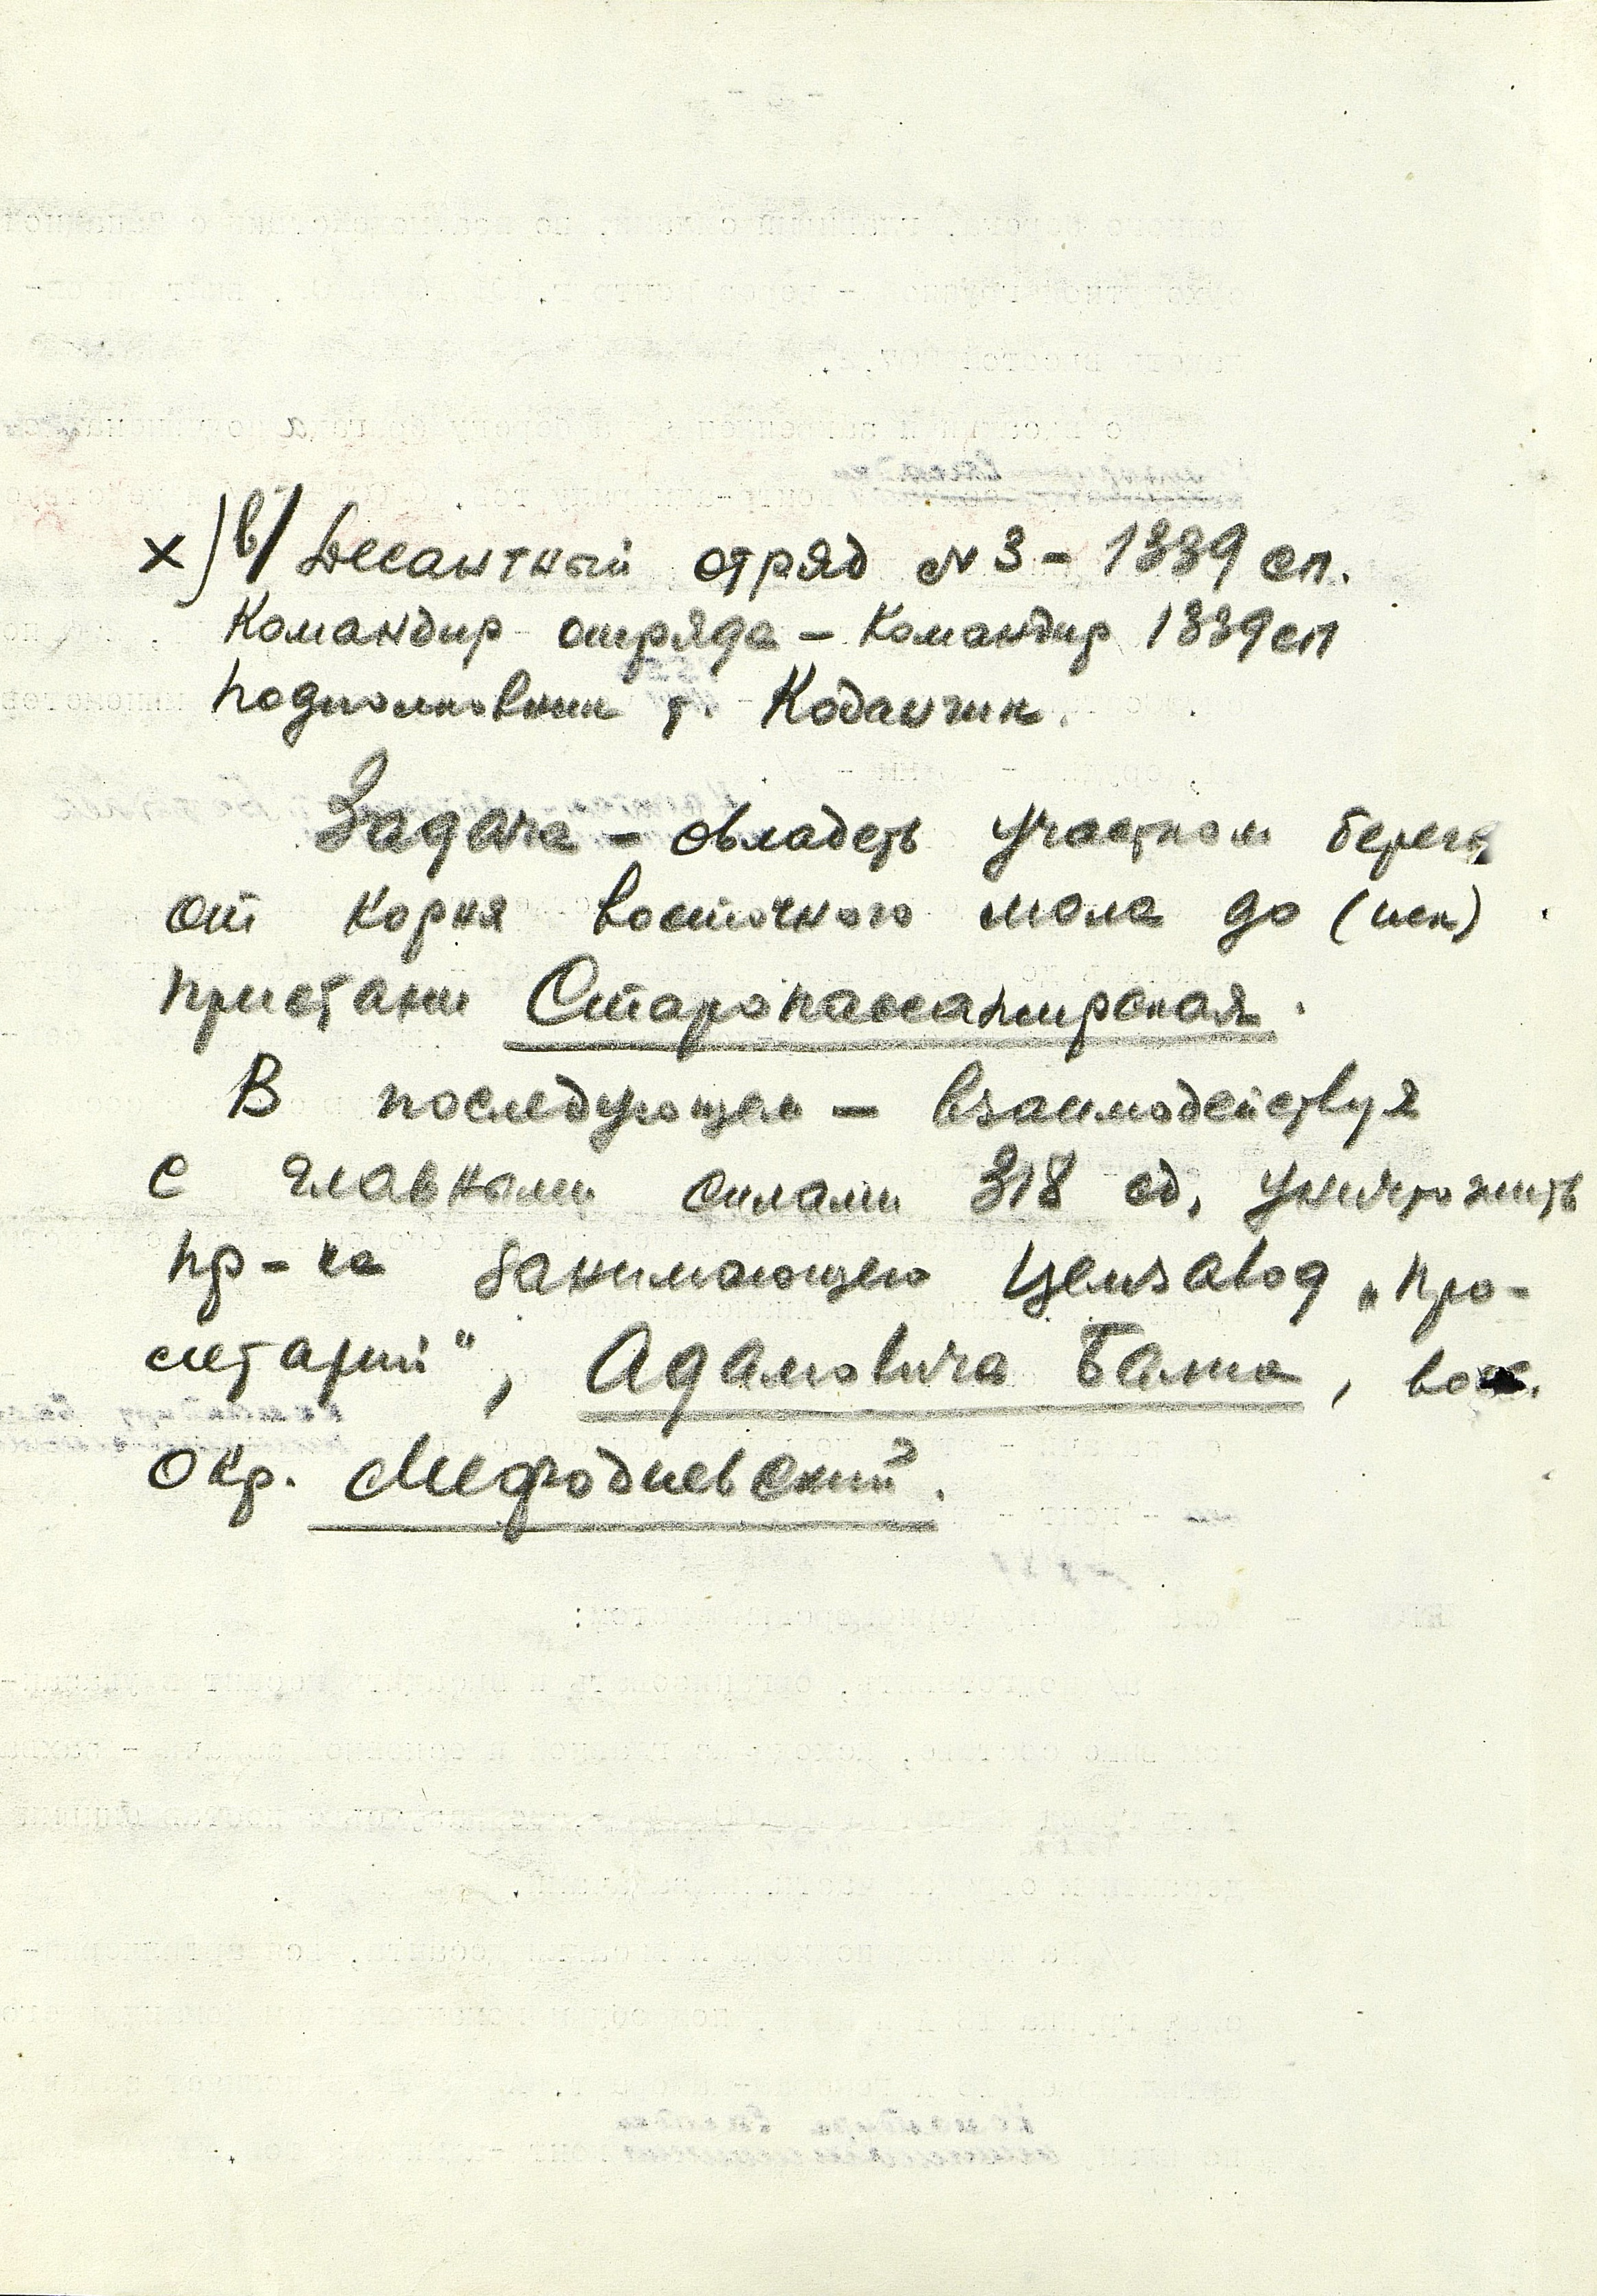 х) в/ Десантный отряд № 3 - 1339 сп.
Командир отряда - командир 1339 сп
подполковник т. Каданчик.
Задача - овладеть участком берега
от корня восточного мола до (иск)
пристани Старопассажирская.
В последующем - взаимодействуя
с главными силами 318 сд, уничтожить
пр-ка занимающего цемзавод „Про-
летарий", Адамовича Балка, вос.
окр. Мефодиевский.